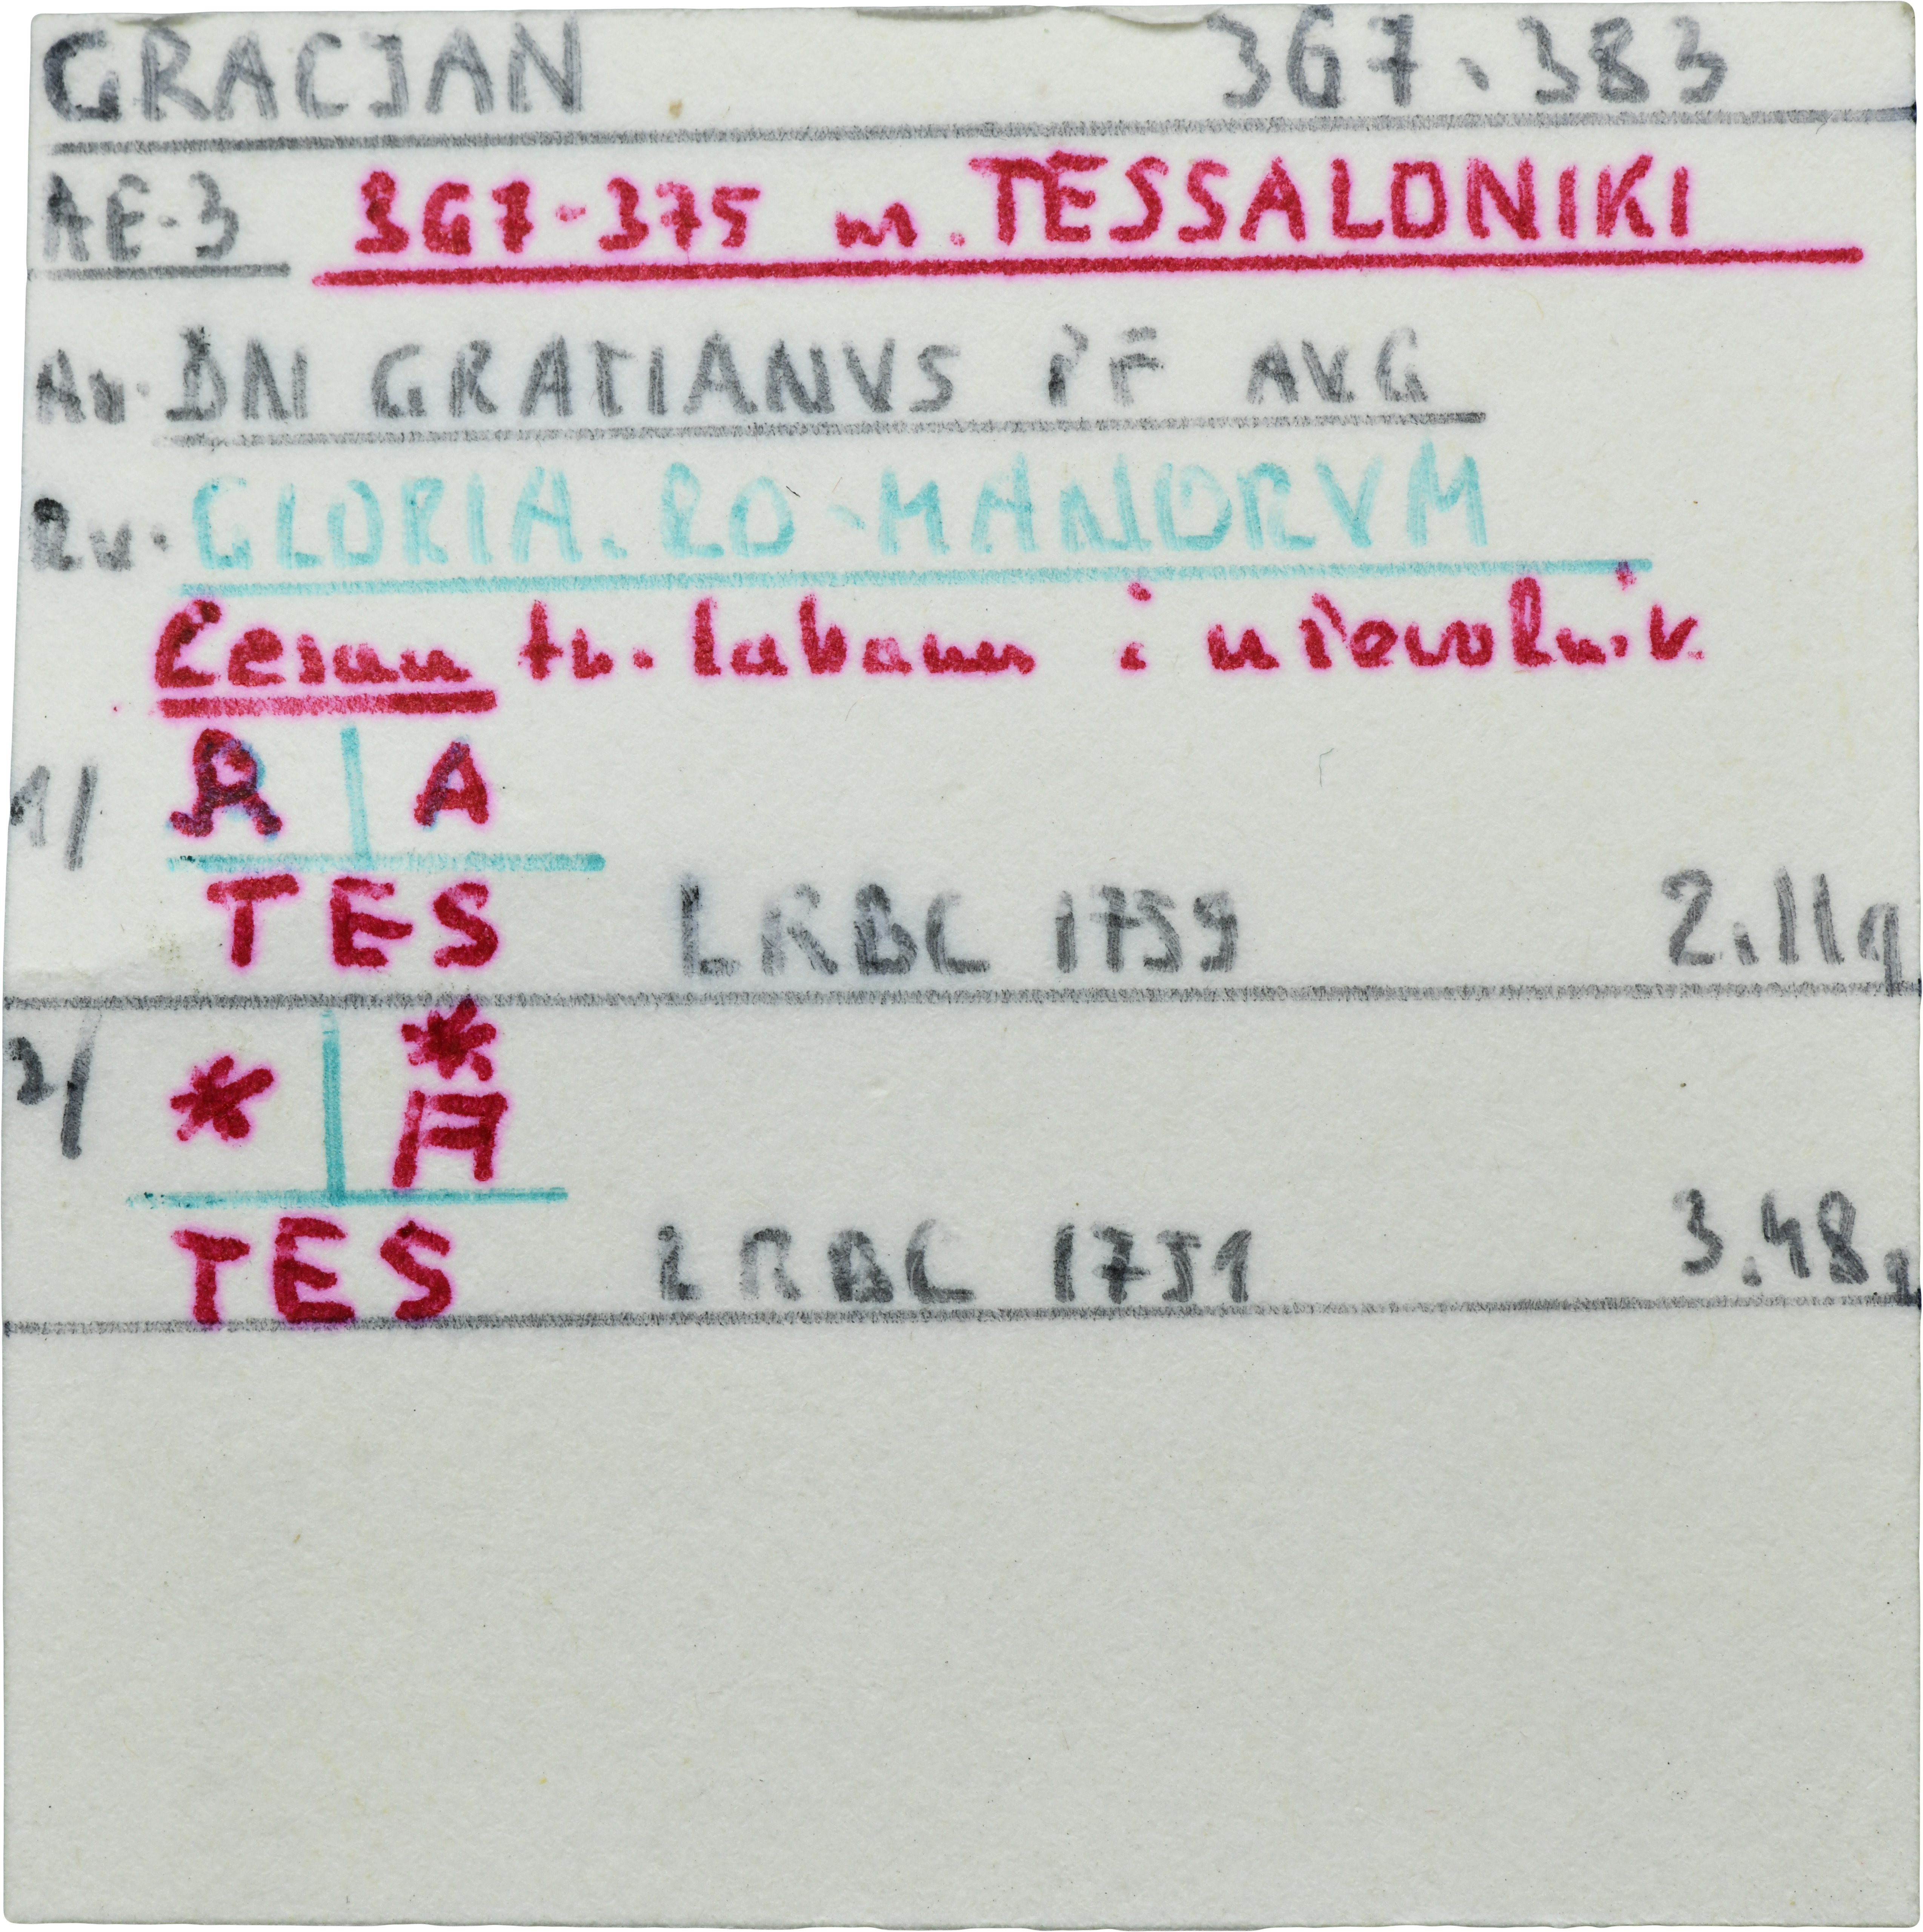 GRACJAN 367-383
AE-3 367-375 m. TESSALONIKI
Av. DN GRATIANVS PF AVG
Rv. GLORIA. RO-MANORVM
Cesarz tr. labarum i niewolnik
1/ R | A
TES LRBC 1759 2.11g
2/ * | *
A
TES LRBC 1759 3.48g